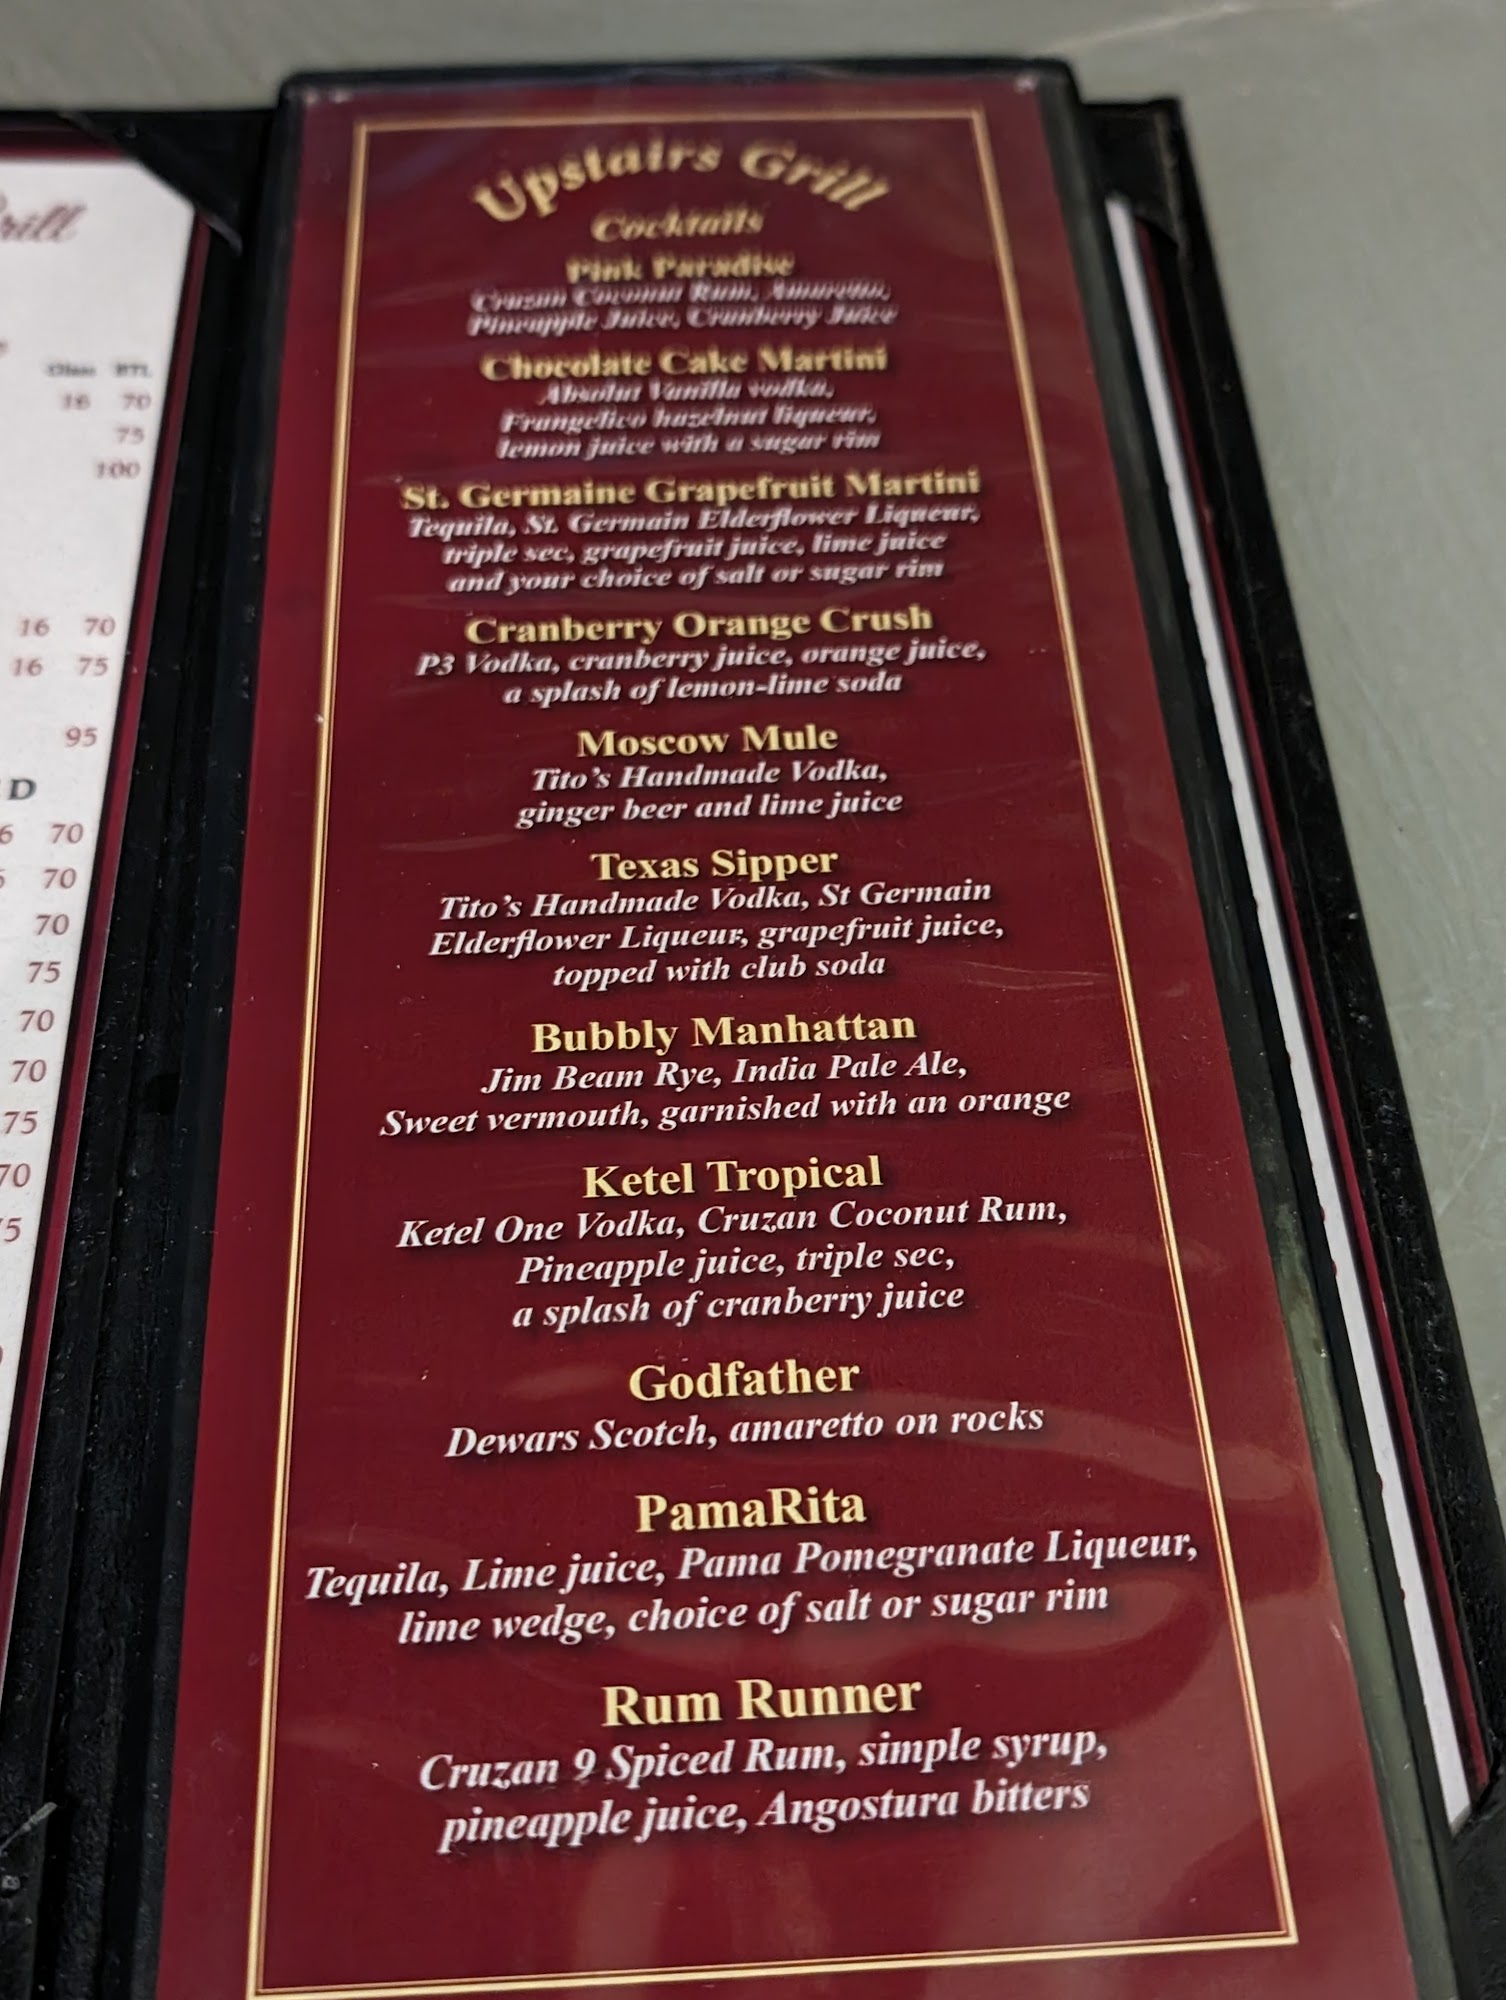 rill
Glass BTL
16 70
75
100
16 70
16 75
95
D
6 70
70
70
75
70
70
75
70
Upstairs Grill
Cocktails
Pink Paradise
Cruzan Coconut Rum, Amaretto,
Pineapple Juice, Cranberry Juice
Chocolate Cake Martini
Absolut Vanilla vodka,
Frangelico hazelnut liqueur,
lemon juice with a sugar rim
St. Germaine Grapefruit Martini
Tequila, St. Germain Elderflower Liqueur,
triple sec, grapefruit juice, lime juice
and your choice of salt or sugar rim
Cranberry Orange Crush
P3 Vodka, cranberry juice, orange juice,
a splash of lemon-lime soda
Moscow Mule
Tito's Handmade Vodka,
ginger beer and lime juice
Texas Sipper
Tito's Handmade Vodka, St Germain
Elderflower Liqueur, grapefruit juice,
topped with club soda
Bubbly Manhattan
Jim Beam Rye, India Pale Ale,
Sweet vermouth, garnished with an orange
Ketel Tropical
Ketel One Vodka, Cruzan Coconut Rum,
Pineapple juice, triple sec,
a splash of cranberry juice
Godfather
Dewars Scotch, amaretto on rocks
PamaRita
Tequila, Lime juice, Pama Pomegranate Liqueur,
lime wedge, choice of salt or sugar rim
Rum Runner
Cruzan 9 Spiced Rum, simple syrup,
pineapple juice, Angostura bitters